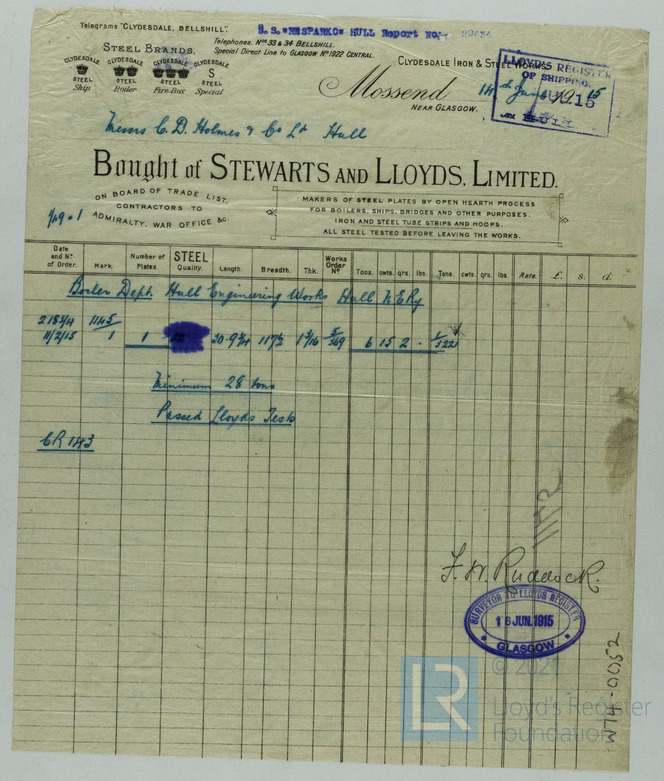 Telegrams "CLYDESDALE, BELLSHILL".
S.S. "RESPARKO" HULL Report No:-
STEEL BRANDS.
Telephones. Nos 33 & 34 BELLSHILL.
Special Direct Line to GLASGOW No 1922 CENTRAL.
CLYDESDALE STEEL Ship
CLYDESDALE STEEL Boiler
CLYDESDALE STEEL Fire Box
CLYDESDALE S STEEL Special
CLYDESDALE IRON & STEEL WORKS.
Mossend
NEAR GLASGOW.
14th June 1915
LLOYD'S REGISTER
OF SHIPPING
15
Messrs C. D. Holmes & Co Ld Hull
Bought of STEWARTS AND LLOYDS, LIMITED.
ON BOARD OF TRADE LIST.
CONTRACTORS TO
ADMIRALTY, WAR OFFICE &c.
MAKERS OF STEEL PLATES BY OPEN HEARTH PROCESS
FOR BOILERS, SHIPS, BRIDGES AND OTHER PURPOSES.
IRON AND STEEL TUBE STRIPS AND HOOPS.
ALL STEEL TESTED BEFORE LEAVING THE WORKS.
Date and No of Order. Mark. Number of Plates STEEL Quality. Length. Breadth. Thk. Works Order No Tons. cwts. qrs. lbs. Tons. cwts. qrs. lbs. Rate. £. s. d.
Boiler Dept. Hull Engineering Works Hull N E Ry
2183/4 1145
11/2/15 1 1 20-9¼ 117½ 1 3/16 6 15 2 -
Minimum 28 tons
Passed Lloyds Tests
CR 143
F. W. Ruddock.
SURVEYOR TO LLOYDS REGISTER
16 JUN. 1915
GLASGOW
W74-0052
LR
© 2021
Lloyd's Register
Foundation